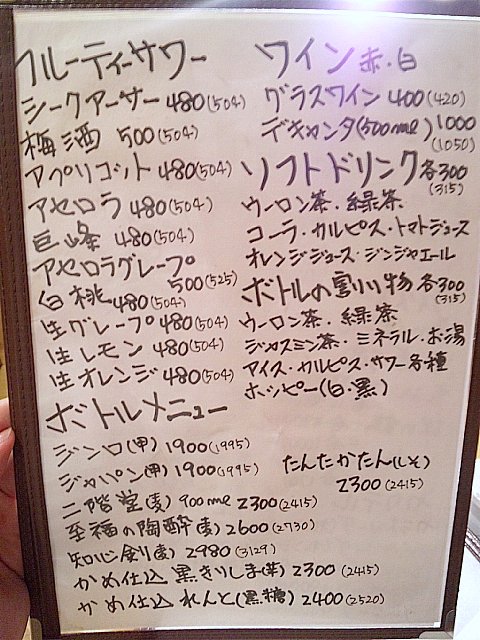 フルーティーサワー
シークアーサー 480(504)
梅酒 500(504)
アプリコット 480(504)
アセロラ 480(504)
巨峰 480(504)
アセロラグレープ
500(525)
白桃 480(504)
生グレープ 480(504)
生レモン 480(504)
生オレンジ 480(504)
ボトルメニュー
ジンロ(甲) 1900(1995)
ジャパン(甲) 1900(1995)
二階堂(麦) 900ml 2300(2415)
至福の陶酔(麦) 2600(2730)
知心剣(麦) 2980(3129)
かめ仕込 黒きりしま(芋) 2300(2415)
かめ仕込 れんと(黒糖) 2400(2520)
ワイン 赤・白
グラスワイン 400(420)
デキャンタ(500ml) 1000
(1050)
ソフトドリンク 各300
(315)
ウーロン茶・緑茶
コーラ・カルピス・トマトジュース
オレンジジュース・ジンジャエール
ボトルの割り物 各300
(315)
ウーロン茶・緑茶
ジャスミン茶・ミネラル・お湯
アイス・カルピス・サワー各種
ホッピー(白・黒)
たんたかたん(しそ)
2300(2415)